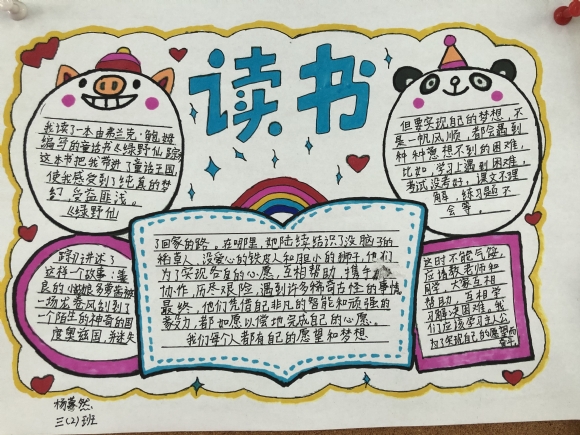 读书
我读了一本由弗兰克·鲍姆
编写的童话书《绿野仙踪》
这本书把我带进了童话王国,
使我感受到了纯真的梦
幻,受益匪浅。
《绿野仙
踪》讲述了
这样一个故事:善
良的小姑娘多萝茜被
一场龙卷风刮到了
一个陌生的神奇的国
度奥兹国,并迷失
了回家的路。在哪里,她陆续结识了没脑子的
稻草人、没爱心的铁皮人和胆小的狮子,他们
为了实现各自的心愿,互相帮助,携手
协作,历尽艰险,遇到许多稀奇古怪的事情。
最终,他们凭借自己非凡的智能和顽强的
毅力,都如愿以偿地完成自己的心愿。
我们每个人都有自己的愿望和梦想
但要实现自己的梦想,不
是一帆风顺,都会遇到
种种意想不到的困难,
比如,学习上遇到困难,
考试没考好,课文不理
解,练习题不
会等。
这时不能气馁,
应请教老师和
同学,大家互相
帮助,互相学
习解决困难。我
们应该学习主人公
为了实现自己的愿望而
杨
然
三(2)班